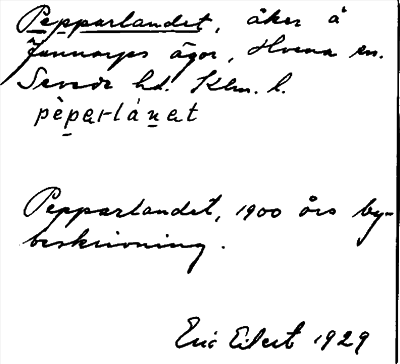 Pepparlandet, åker å
Jannarps ägor, Hvena sn.
Sevede hd. Klm. l.
pèparláṇat
Pepparlandet, 1900 års by-
beskrivning.
Eric Eilert 1929